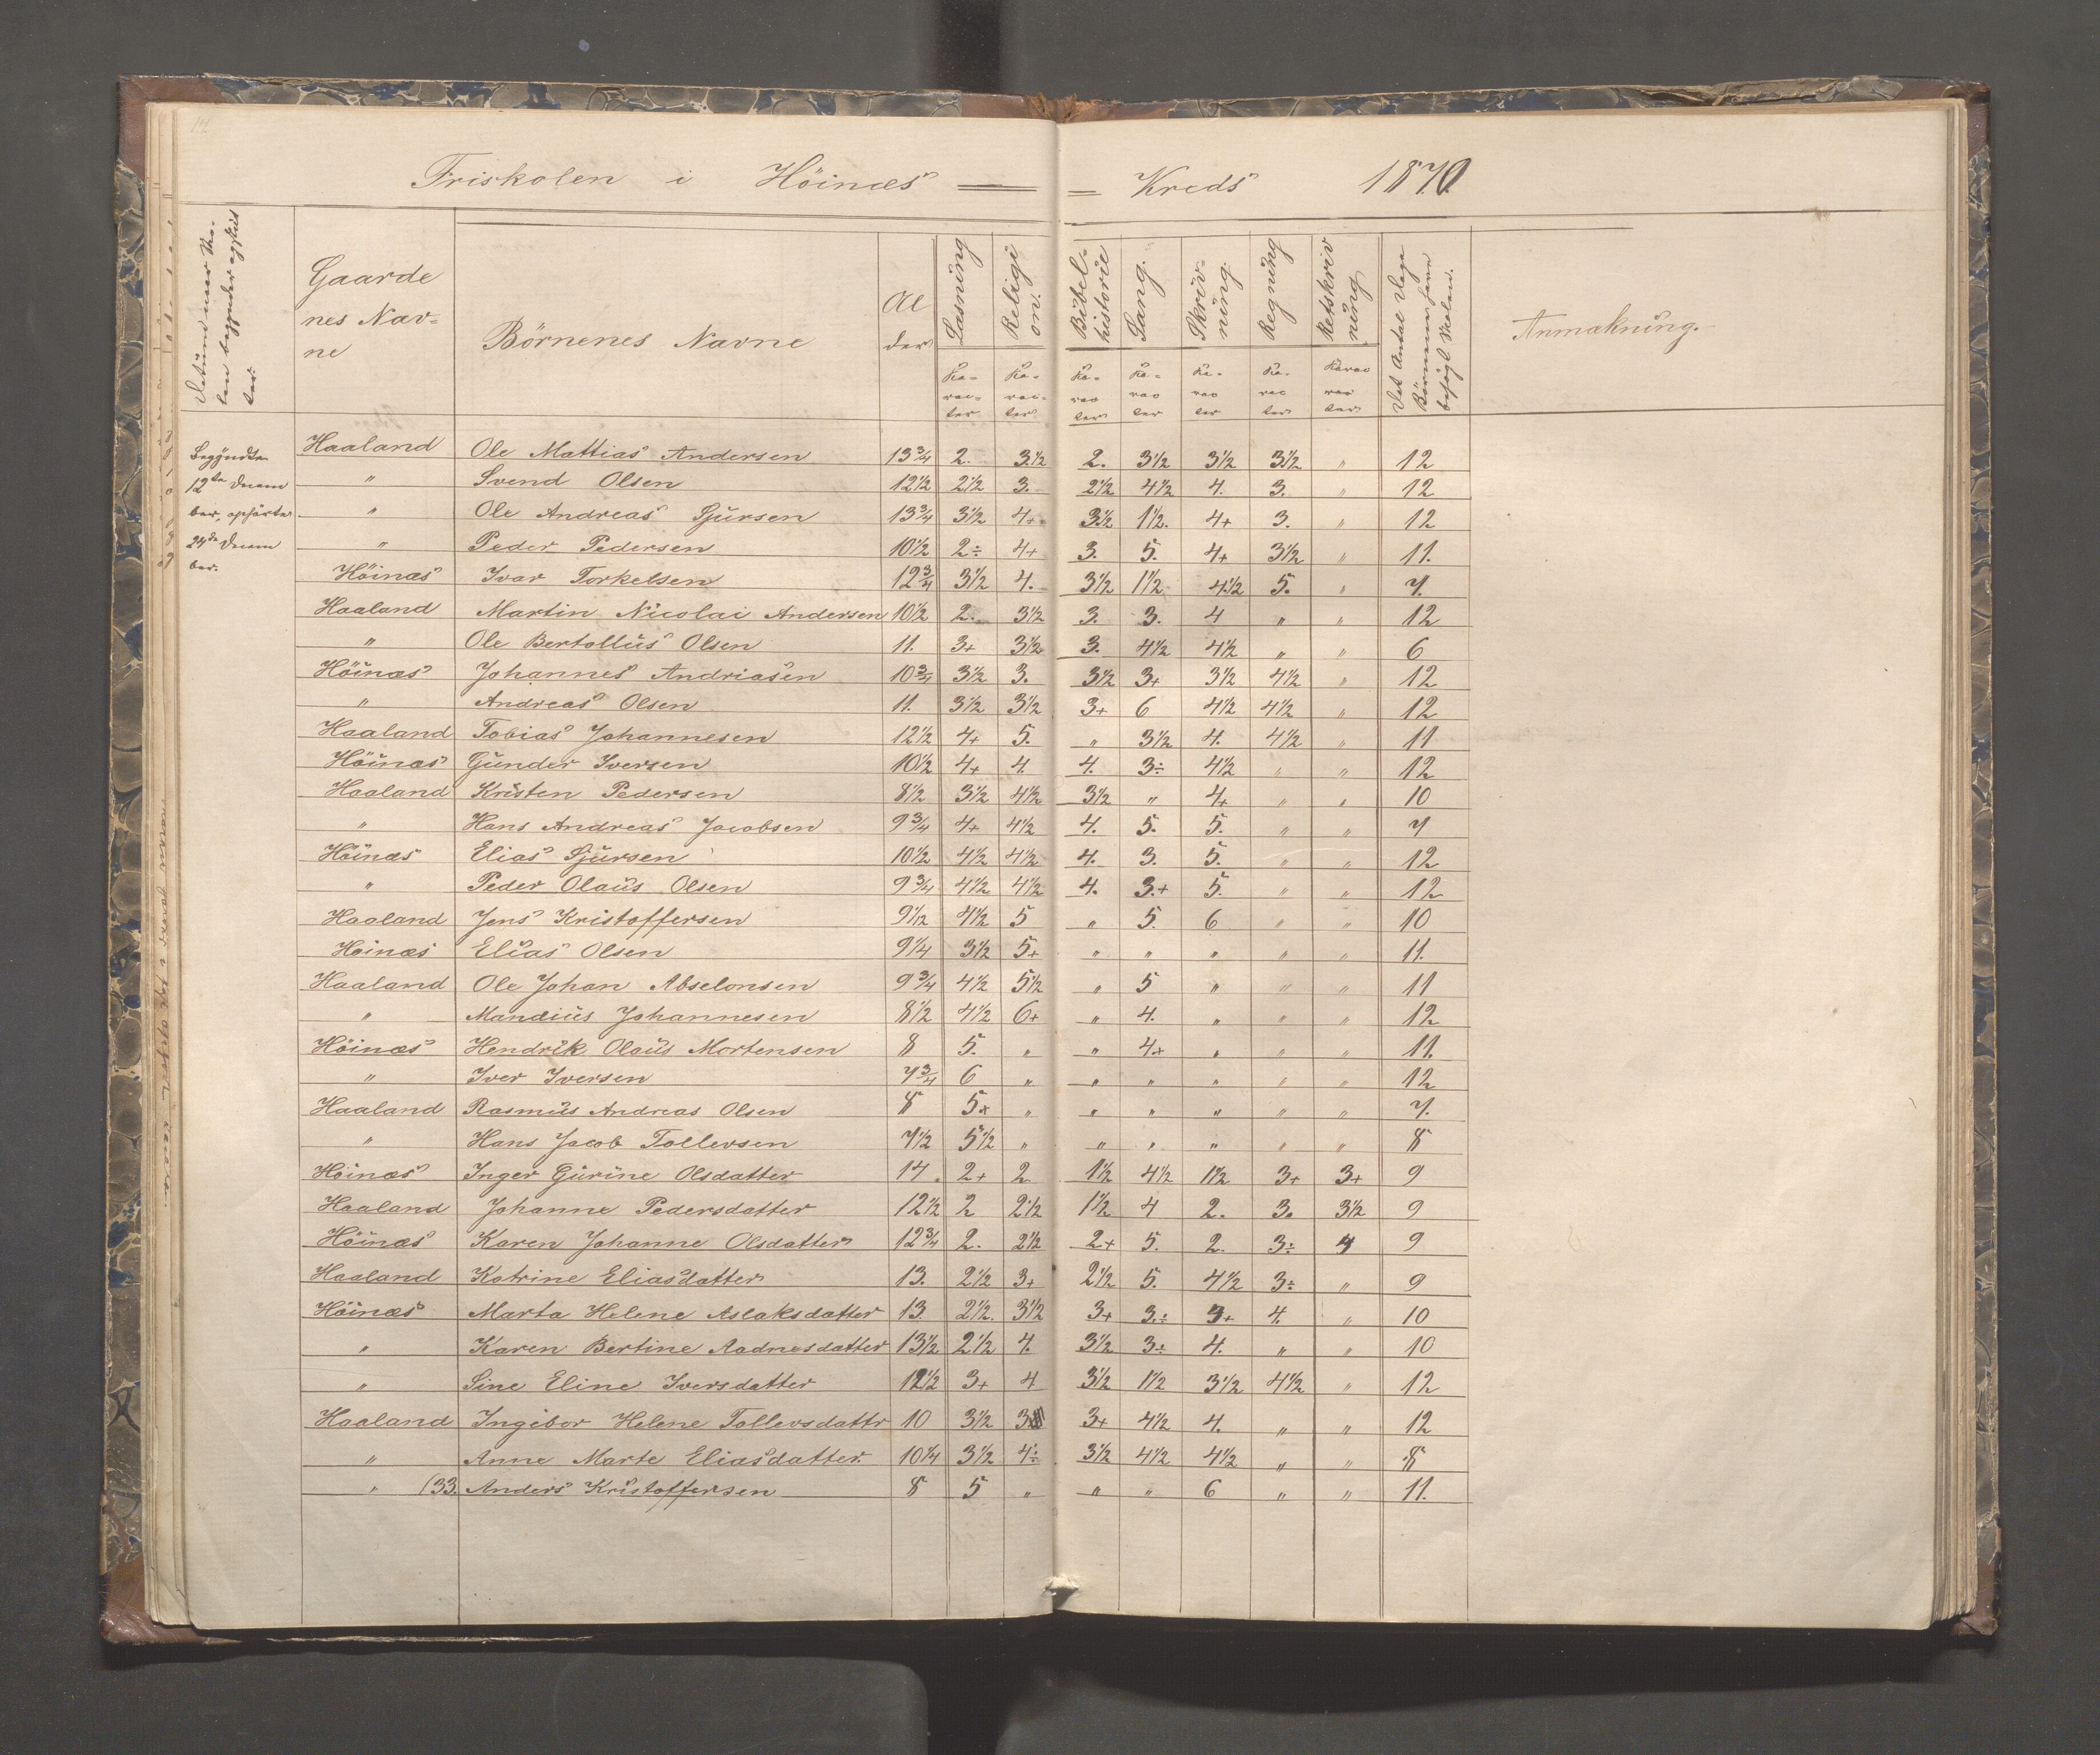 14
Friskolen i Höinæs Kreds 1870.
Gaarde
nes Nav=
ne
Börnenes Navne
Al
der
Læsning
Religi
on.
Bibel=
historie
Sang.
Skriv=
ning.
Regning
Retskriv
ning
Anmakning.
Begyndte
12te Decem
ber, ophörte
24de Decem
ber.
Haaland Ole Mattias Andersen 13¾ 2. 3½ 2. 3½ 3½ 3½ " 12
" Svend Olsen 12½ 2½ 3. 2½ 4½ 4. 3. " 12
" Ole Andreas Sjursen 13¾ 3½ 4+ 3½ 1½. 4+ 3. " 12
" Peder Pedersen 10½ 2÷ 4+ 3. 5. 4+ 3½ " 11.
Höinæs Ivar Torkelsen 12¾ 3½ 4. 3½ 1½ 4½ 5. " 7.
Haaland Martin Nicolai Andersen 10½ 2. 3½ 3. 3. 4 " " 12
" Ole Bertollus Olsen 11. 3+ 3½ 3. 4½ 4½ " " 6
Höinæs Johannes Andriasen 10¾ 3½ 3. 3½ 3+ 3½ 4½ " 12
" Andreas Olsen 11. 3½ 3½ 3+ 6 4½ 4½ " 12
Haaland Tobias Johannesen 12½ 4+ 5. " 3½ 4. 4½ " 11
Höinæs Gunder Iversen 10½ 4+ 4. 4. 3÷ 4½ " " 12
Haaland Kristen Pedersen 8½ 3½ 4½ 3½ " 4+ " " 10
" Hans Andreas Jacobsen 9¾ 4+ 4½ 4. 5. 5. " " 7
Höinæs Elias Sjursen 10½ 4½ 4½ 4. 3. 5. " " 12
" Peder Olaus Olsen 9¾ 4½ 4½ 4. 3.+ 5. " " 12
Haaland Jens Kristoffersen 9 1/12 4½ 5 " 5. 6 " " 10
Höinæs Elias Olsen 9¼ 3½ 5+ " " " " " 11.
Haaland Ole Johan Abselonsen 9¾ 4½ 5½ " 5 " " " 11
" Mandius Johannesen 8½ 4½ 6+ " 4. " " " 12
Höinæs Hendrik Olaus Mortensen 8 5. " " 4+ " " " 11.
" Iver Iversen 7¾ 6 " " " " " " 12
Haaland Rasmus Andreas Olsen 8 5+ " " " " " " 7.
" Hans Jacob Tollevsen 7½ 5½ " " " " " " 8
Höinæs Inger Gurine Olsdatter 14. 2+ 2 1½ 4½ 1½ 3+ 3+ 9
Haaland Johanne Pedersdatter 12½ 2 2½ 1½ 4 2. 3. 3½ 9
Höinæs Karen Johanne Olsdatter 12¾ 2. 2½ 2+ 5. 2. 3÷ 4 9
Haaland Katrine Eliasdatter 13. 2½ 3+ 2½ 5. 4½ 3÷ " 9
Höinæs Marta Helene Aslaksdatter 13. 2½. 3½ 3+ 3.÷ 4+ 4. " 10
" Karen Bertine Aadnesdatter 13½ 2½ 4. 3½ 3÷ 4. " " 10
" Sine Eline Iversdatter 12½ 3+ 4 3½ 1½ 3½ 4½ " 12
Haaland Ingibor Helene Tollevsdattr 10 3½ 3 3+ 4½ 4. " " 12
" Anne Marte Eliasdatter. 10¼ 3½ 4÷ 3½ 4½ 4½ " " 8
" (33. Anders Kristoffersen 8 5 " " " 6 " " 11.